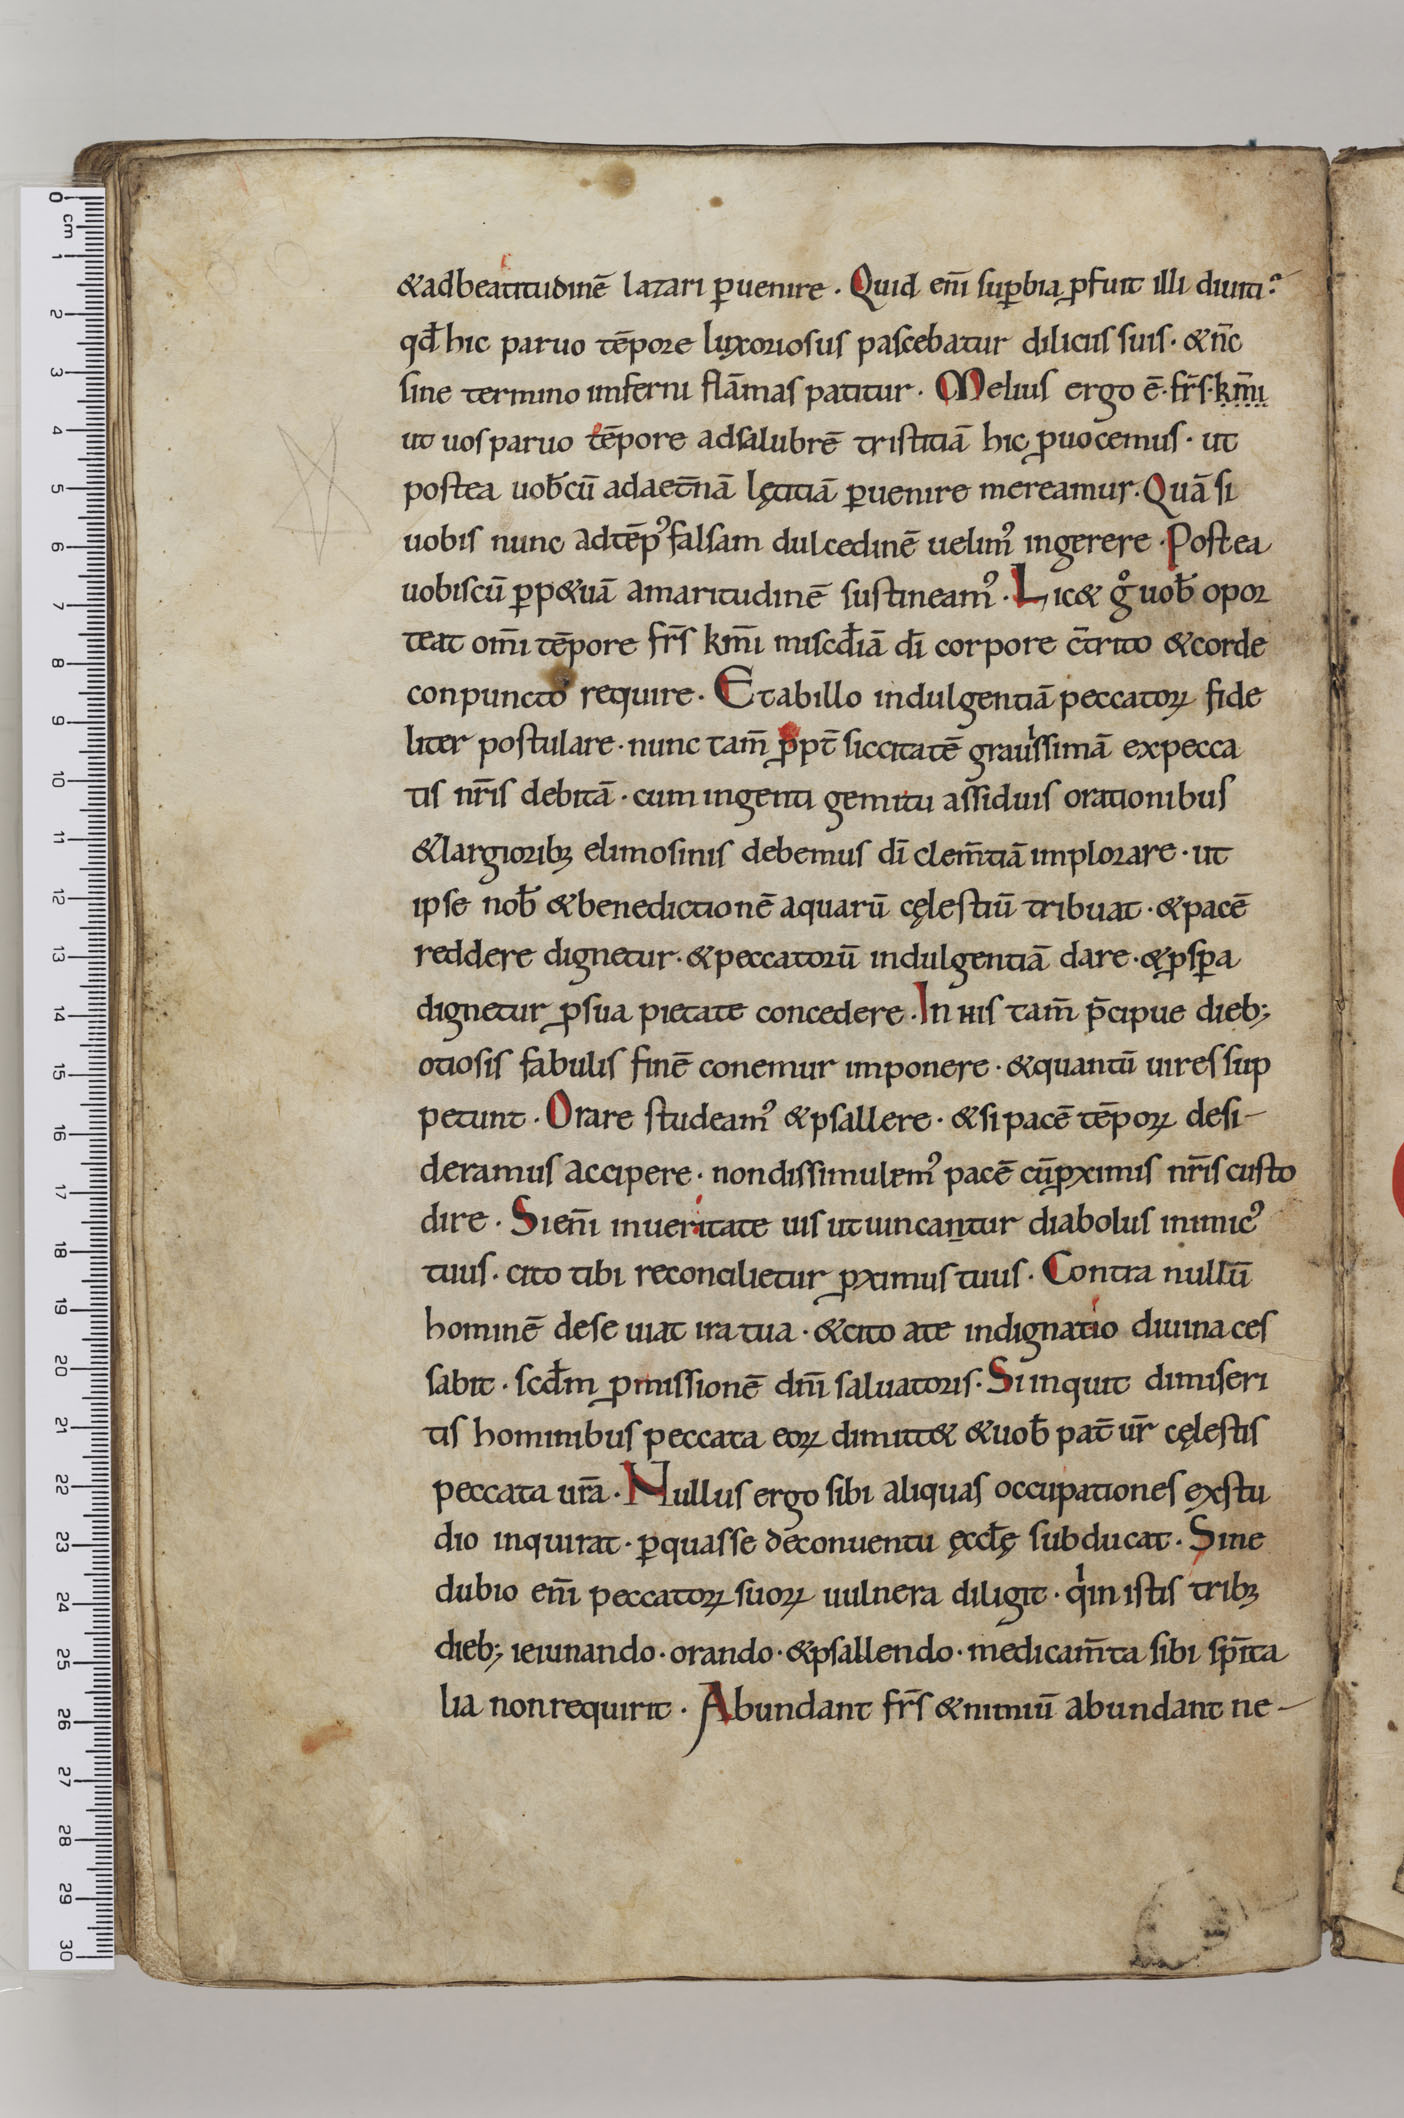 &adbeatitudinē lazari ꝑuenire · Quid eni̅ suꝑbia ꝓfuit illi diuiti?
qđ hic paruo te̅pore luxoriosus pascebatur diliciis suis · & nc̅
sine termino imferni fla̅mas patitur · Melius ergo ē · fr̅s · km̅i
ut uos paruo te̅pore adsalubrē tristitiā hic ꝓuocemus · ut
postea uob̅cū adaet̅nā lętitiā ꝑuenire mereamur · Quā si
uobis nunc adte̅pꝰ falsam dulcedinē uelimꝰ ingerere · Postea
uobiscū ꝑp&uā amaritudinē sustineamꝰ · Lic& gͦ uob̅ opor
teat om̅i te̅pore fr̅s km̅i misc̅điā di̅ corpore c̅trito & corde
conpuncto require · Et abillo indulgentiā peccatoꝝ fide
liter postulare · nunc tam̅ ꝓpt̅ siccitatē grauissimā expecca
tis nr̅is debitā · cum ingenti gemitu assiduis orationibus
& largioribꝫ elimosinis debemus di̅ clem̅tiā implorare · ut
ipse nob̅ & benedictionē aquarū cęlestiū tribuat · & pacē
reddere dignetur · & peccatorū indulgentiā dare · & ꝓsꝑa
dignetur ꝓ sua pietate concedere · In his tam̅ p̅cipue dieb;
otiosis fabulis finē conemur imponere · & quantū uires sup
petunt · Orare studeamꝰ & psallere · & si pacē te̅poꝝ desi-
deramus accipere · non dissimulemꝰ pacē cū ꝓximis nr̅is custo
dire · Si eni̅ inueritate uis ut uincantur diabolus inimicꝰ
tuus · cito tibi reconcilietur ꝓximus tuus · Contra nullū
hominē deseuiat ira tua · & cito ate indignatio diuina ces
sabit · scđm ꝓmissionē dni̅ saluatoris · Si inquit dimiseri
tis hominibus peccata eoꝝ dimitt& & uob̅ pat̅ ur̅ cęlestis
peccata ur̅a · Nullus ergo sibi aliquas occupationes exstu
dio inquirat · ꝑ quas se deconuentu ęccłę subducat · Sine
dubio eni̅ peccatoꝝ suoꝝ uulnera diligit · qͥ in istis tribꝫ
dieb; ieiunando · orando · & psallendo · medicam̅ta sibi sp̅ita
lia non requirit · Abundant fr̅s & nimiū abundant ne-